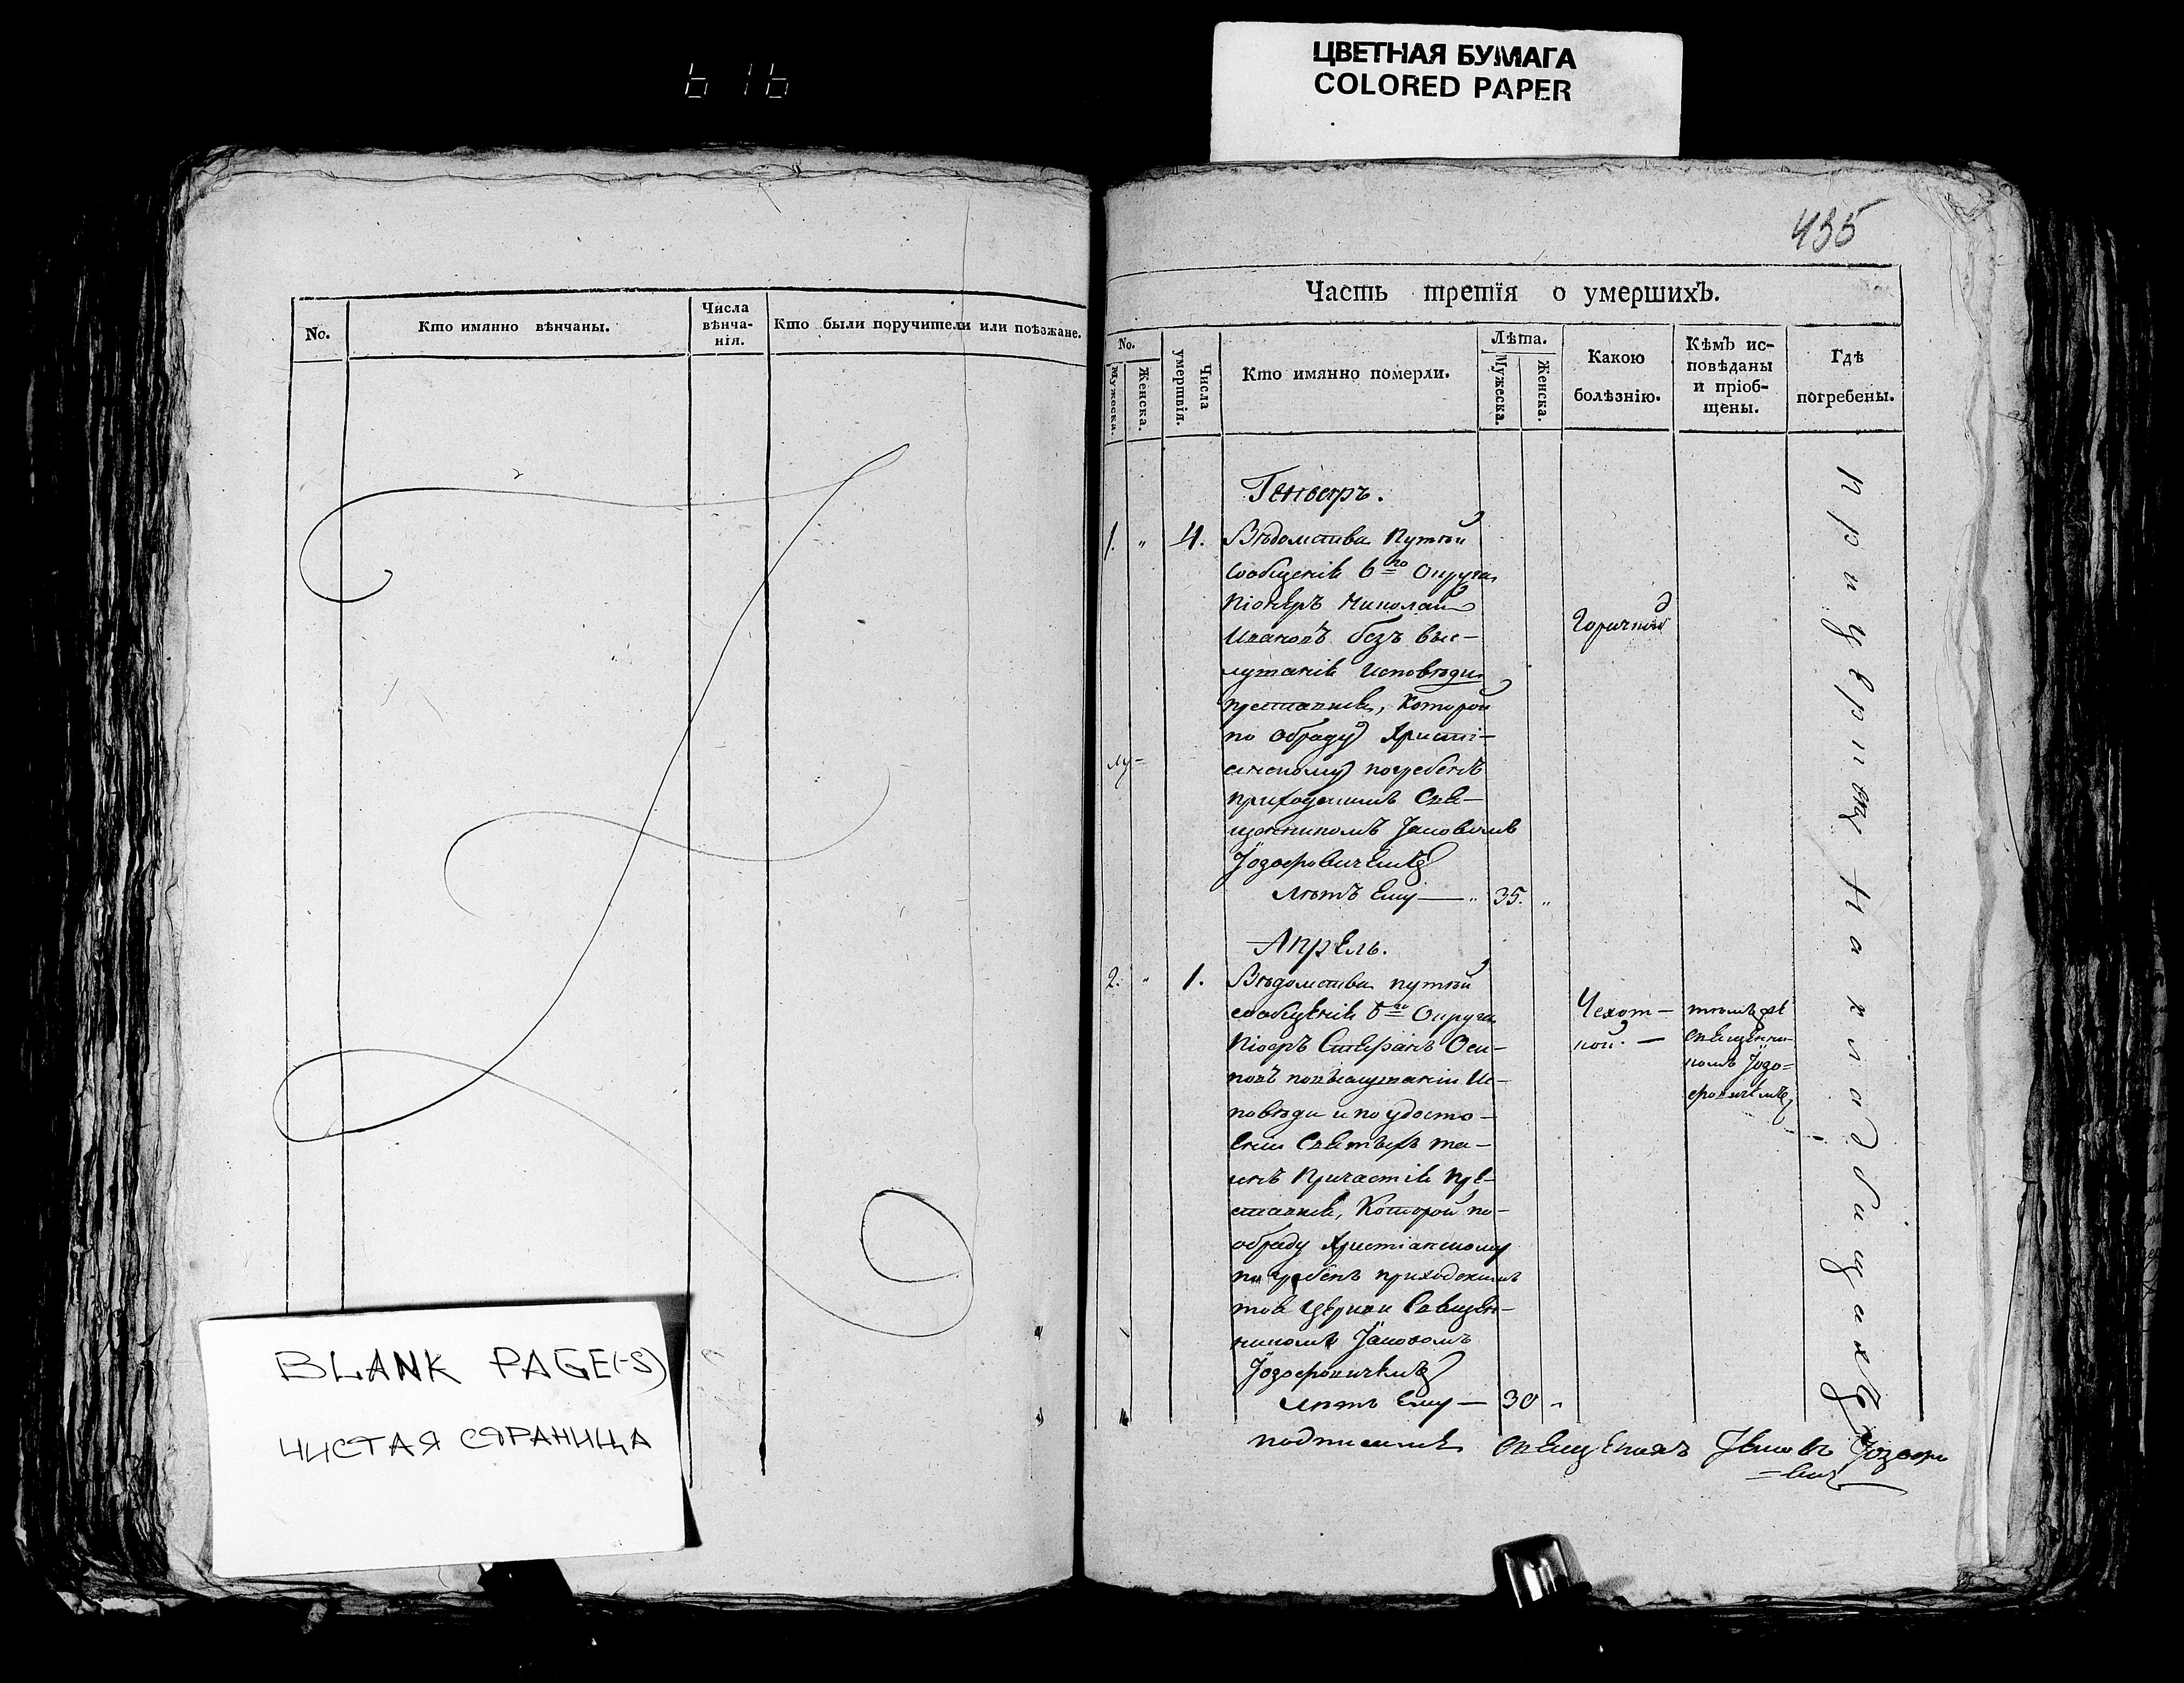 616
ЦВЕТНАЯ БУМАГА
COLORED PAPER
No.
Кто имянно вѣнчаны.
Числа
вѣнча-
нія.
Кто были поручители или поѣзжане.
BLANK PAGE(-S)
ЧИСТАЯ СТРАНИЦА
435
Часть третія о умершихъ.
No.
Мужеска.
Женска.
Числа
умертвія.
Кто имянно померли.
Лѣта.
Мужеска.
Женска.
Какою
болѣзнію.
Кѣмъ ис-
повѣданы
и пріоб-
щены.
Гдѣ
погребены.
Генваръ.
1. " 4. Вѣдомства Путѣй
сообщенія 6го Округа
Піонѣръ Николай
Ивановъ безъ выс-
Горячкой
лушанія Исповѣди
преставися, Которой
по Обряду Христі-
анскому погребенъ
приходскимъ Свя-
щенникомъ Іаковомъ
Іозофовичемъ
Лѣтъ Ему — " 35. "
при церкви На кладбищахъ
Апрель.
2. " 1. Вѣдомства путѣй
сообщенія 6го Округа
Піоеръ Стефанъ Оси-
повъ повыслушаніи Ис-
повѣди и по удосто-
еніи Святыхъ та-
инъ Причастія пре-
ставися, Которой по-
обряду Христіанскому
погребенъ приходскимъ
тоя Церкви Священ-
никомъ Іаковомъ
Іозофовичемъ
Лѣтъ Ему — 30 "
Чехот-
кой. —
тѣмъже
священни-
комъ Іозо-
фовичемъ
подписался священникъ Іаковъ Іозофо
=вичъ